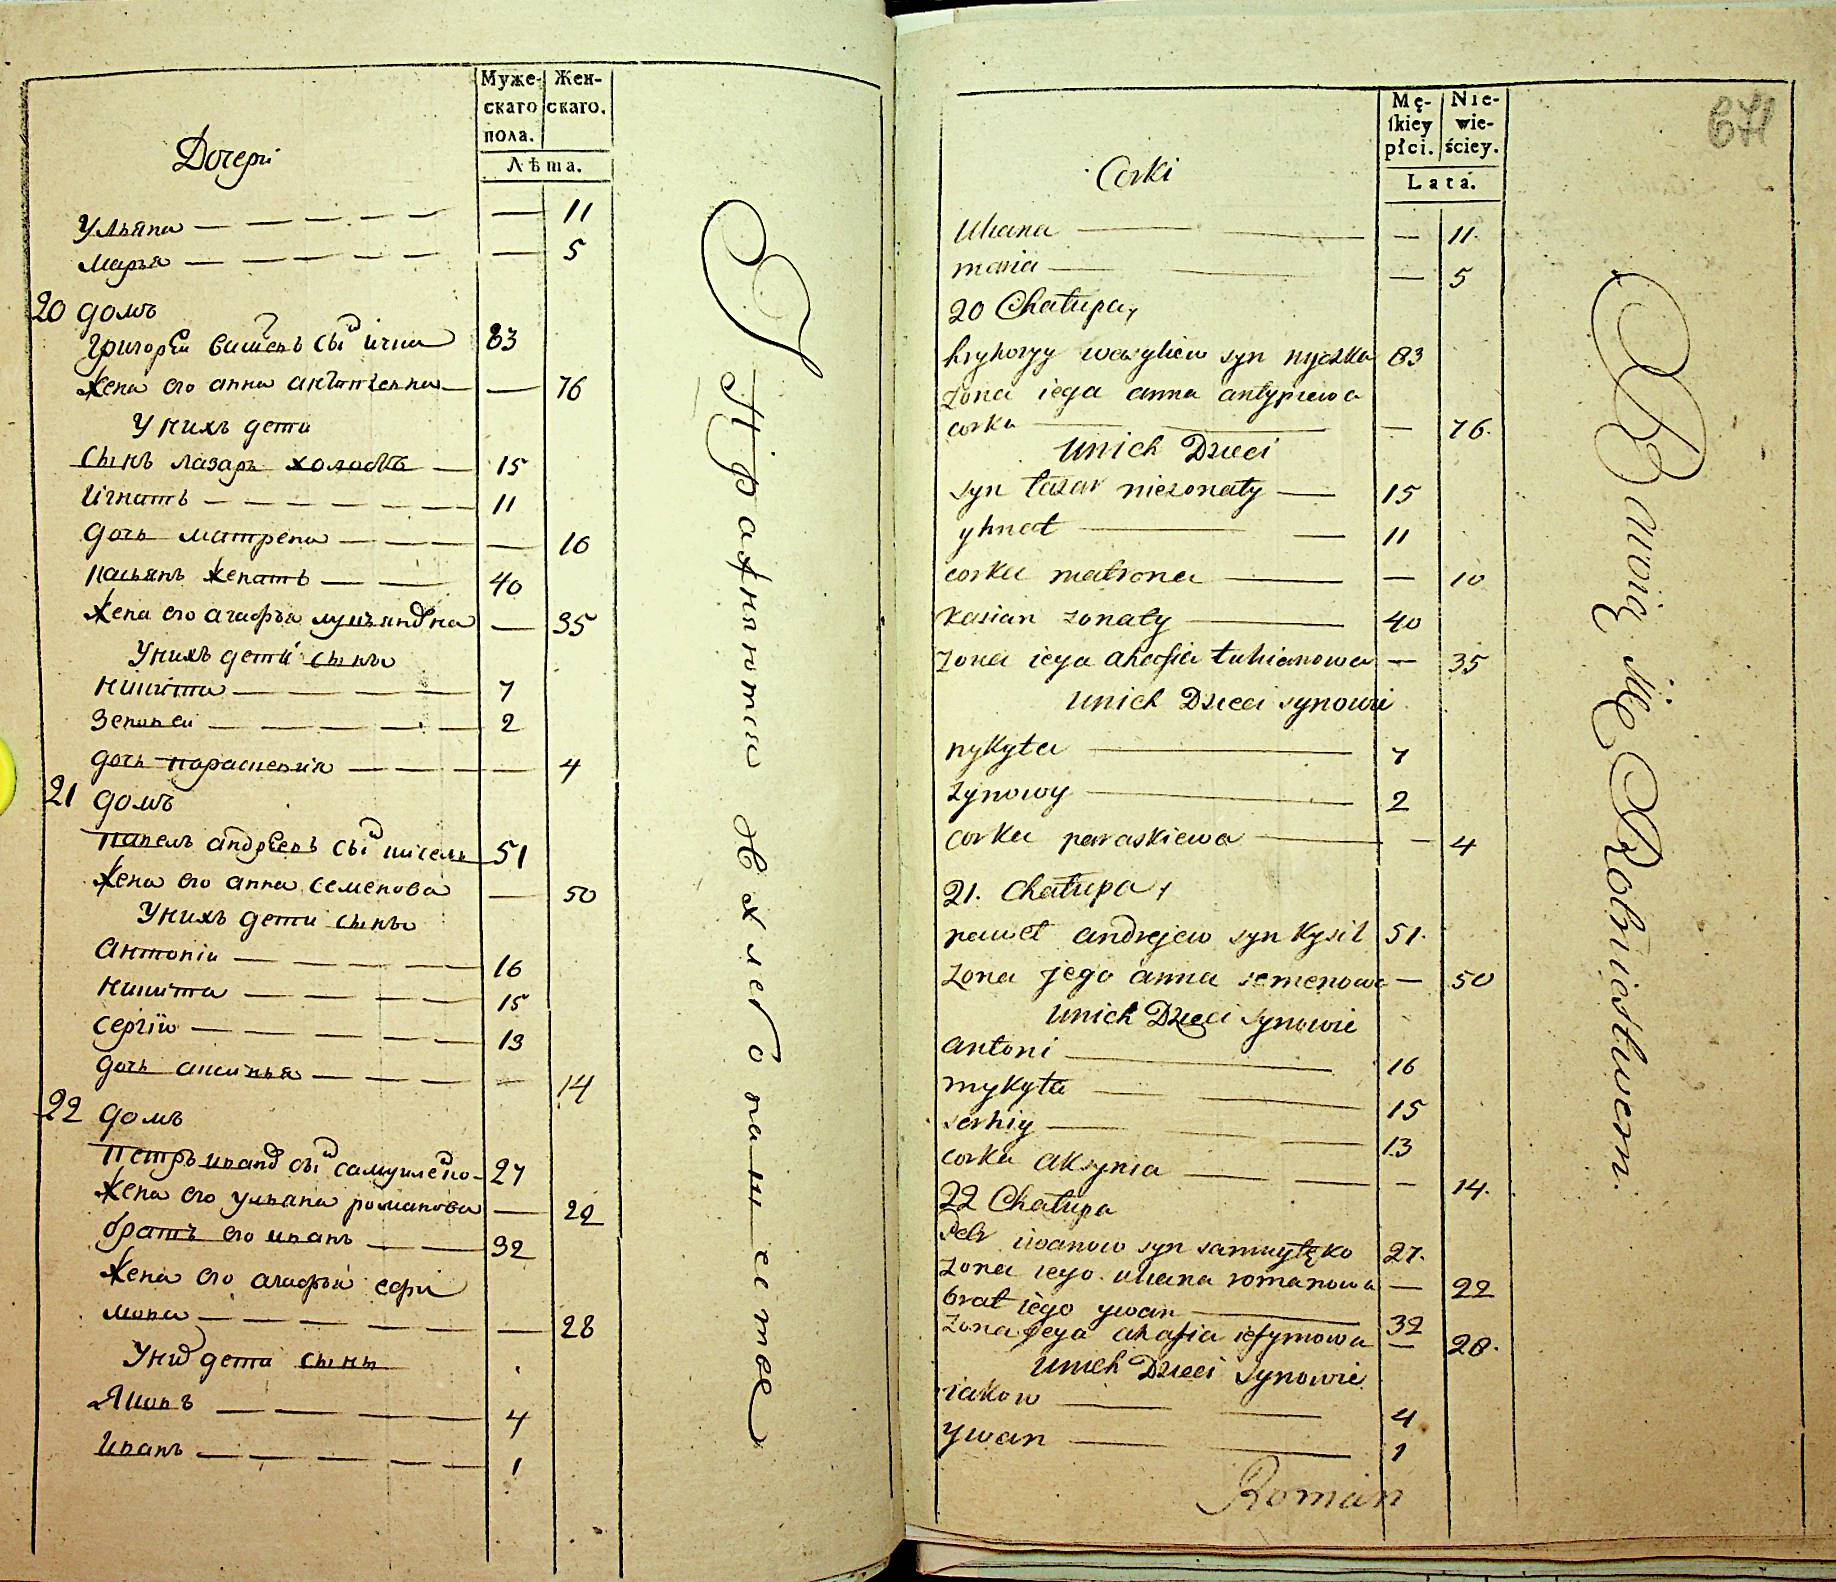 Муже- Жен-
скаго скаго.
пола.
Лѣта.
Дочери
Ульяна — — — — — — 11
Марья — — — — — — 5
20 домъ
Григорей василевъ сы͡н 83
Жена его анна антипьевна — — 76
У нихъ дети
сынъ лазарь холостъ — 15
Игнатъ — — — — — — 11
дочь матрена — — — — — 10
касьянъ женатъ — — — 40
Жена его агафья лукъянова — 35
У нихъ дети сынъ
никита — — — — — 7
Зеновеи — — — — — 2
дочь параскевия — — — — 4
21 домъ
павелъ андреевъ сы͡н кисель 51
Жена его анна семенова — 50
У нихъ дети сынъ
Антонiи — — — — — 16
никита — — — — — 15
сергiй — — — — — 13
дочь аксинья — — — — — 14
22 домъ
петръ иванов сы͡н самуиленко 27
Жена его ульяна романова — 22
братъ его иванъ — — 32
Жена его агафья ефи
мова — — — — — — 28
У них дети сынъ
Яковъ — — — — — 4
Иванъ — — — — — 1
Упражняютси Вхлебопашестве
Mę- Nie-
skiey wie-
płci. ściey.
Lata.
671
Corki
Uliana — — — 11.
maria — — — 5
20 Chałupa,
hryhoryy wasyliew syn nyczka 83
zona iega anna antypiewa
corka — — — 76.
Unich Dzieci
syn łazar niezonaty — 15
yhnat — — 11
corka matrona — — 10
Kasian zonaty — 40
zona iega ahafia łukianowa — 35
Unich Dzieci synowie
nykyta — 7
zynowy — 2
corka paraskiewa — — 4
21. Chałupa,
paweł andrejew syn Kysil 51.
zona jego anna semenowa — 50
Unich Dzieci synowie
antoni — 16
mykyta — — 15
serhiy — — — 13
corka aksynia — — — 14.
22 Chałupa
Petr iwanow syn samuylęko 27.
zona iego uliana romanowa — 22
brat iego ywan — 32
zona jega ahafia iefymowa — 28.
Unich Dzieci Synowie
iakow — — 4
ywan — — 1
Roman
Bawią się Rolnictwem.